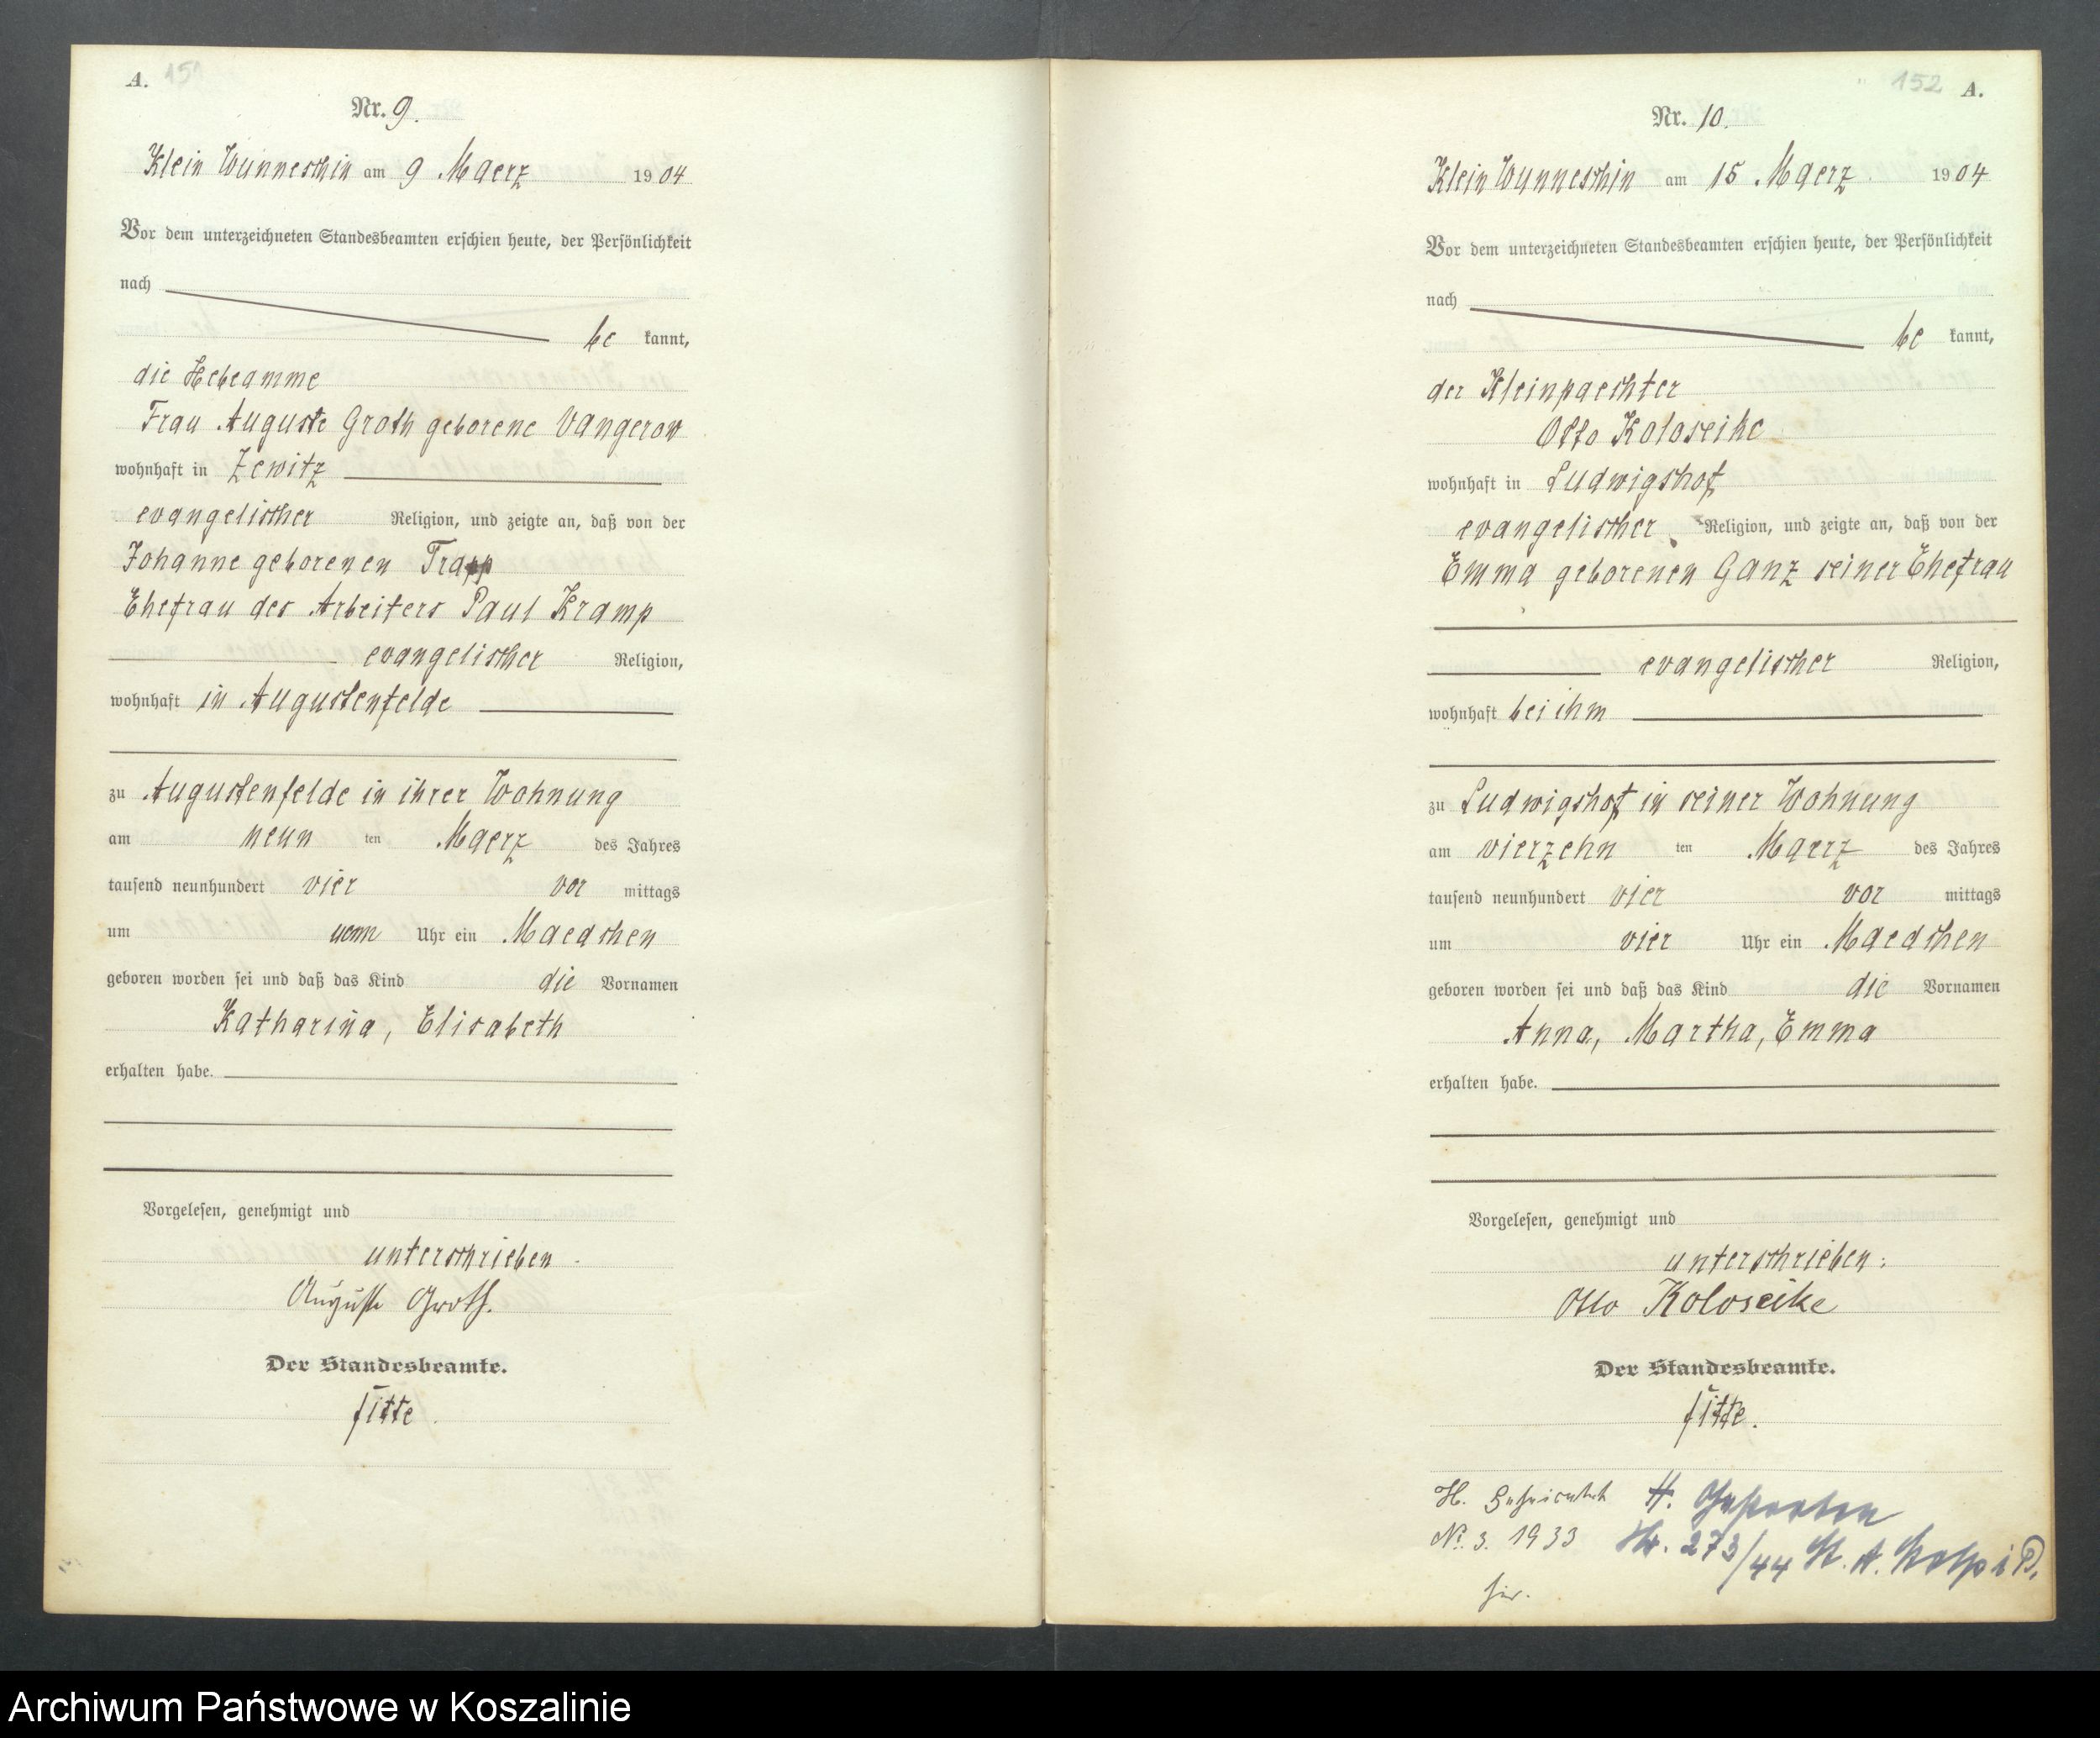 A. 151
Nr. 9.
Klein Wunneschin am 9 Maerz 1904
Vor dem unterzeichneten Standesbeamten erschien heute, der Persönlichkeit
nach
be kannt,
die Hebeamme
Frau Auguste Groth geborene Vangerow
wohnhaft in Zewitz
evangelischer Religion, und zeigte an, daß von der
Johanne geborenen Trapp
Ehefrau des Arbeiters Paul Kramp
evangelischer Religion,
wohnhaft in Augustenfelde
zu Augustenfelde in ihrer Wohnung
am neun ten Maerz des Jahres
tausend neunhundert vier vor mittags
um Uhr ein Maedchen
geboren worden sei und daß das Kind die Vornamen
Katharina, Elisabeth
erhalten habe.
Vorgelesen, genehmigt und
unterschrieben
Auguste Groth.
Der Standesbeamte.
Fitte
152 A.
Nr. 10.
Klein Wunneschin am 15 Maerz 1904
Vor dem unterzeichneten Standesbeamten erschien heute, der Persönlichkeit
nach
be kannt,
der Kleinpaechter
Otto Koloseike
wohnhaft in Ludwigshof
evangelischer Religion, und zeigte an, daß von der
Emma geborenen Ganz seiner Ehefrau
evangelischer Religion,
wohnhaft bei ihm
zu Ludwigshof in seiner Wohnung
am vierzehn ten Maerz des Jahres
tausend neunhundert vier vor mittags
um vier Uhr ein Maedchen
geboren worden sei und daß das Kind die Vornamen
Anna, Martha, Emma
erhalten habe.
Vorgelesen, genehmigt und
unterschrieben:
Otto Koloseike
Der Standesbeamte.
Fitte.
H. Geheiratet
No. 3. 1933
hier.
†. Gestorben
Nr. 273/44 St. A. Stolp i P.
Archiwum Państwowe w Koszalinie